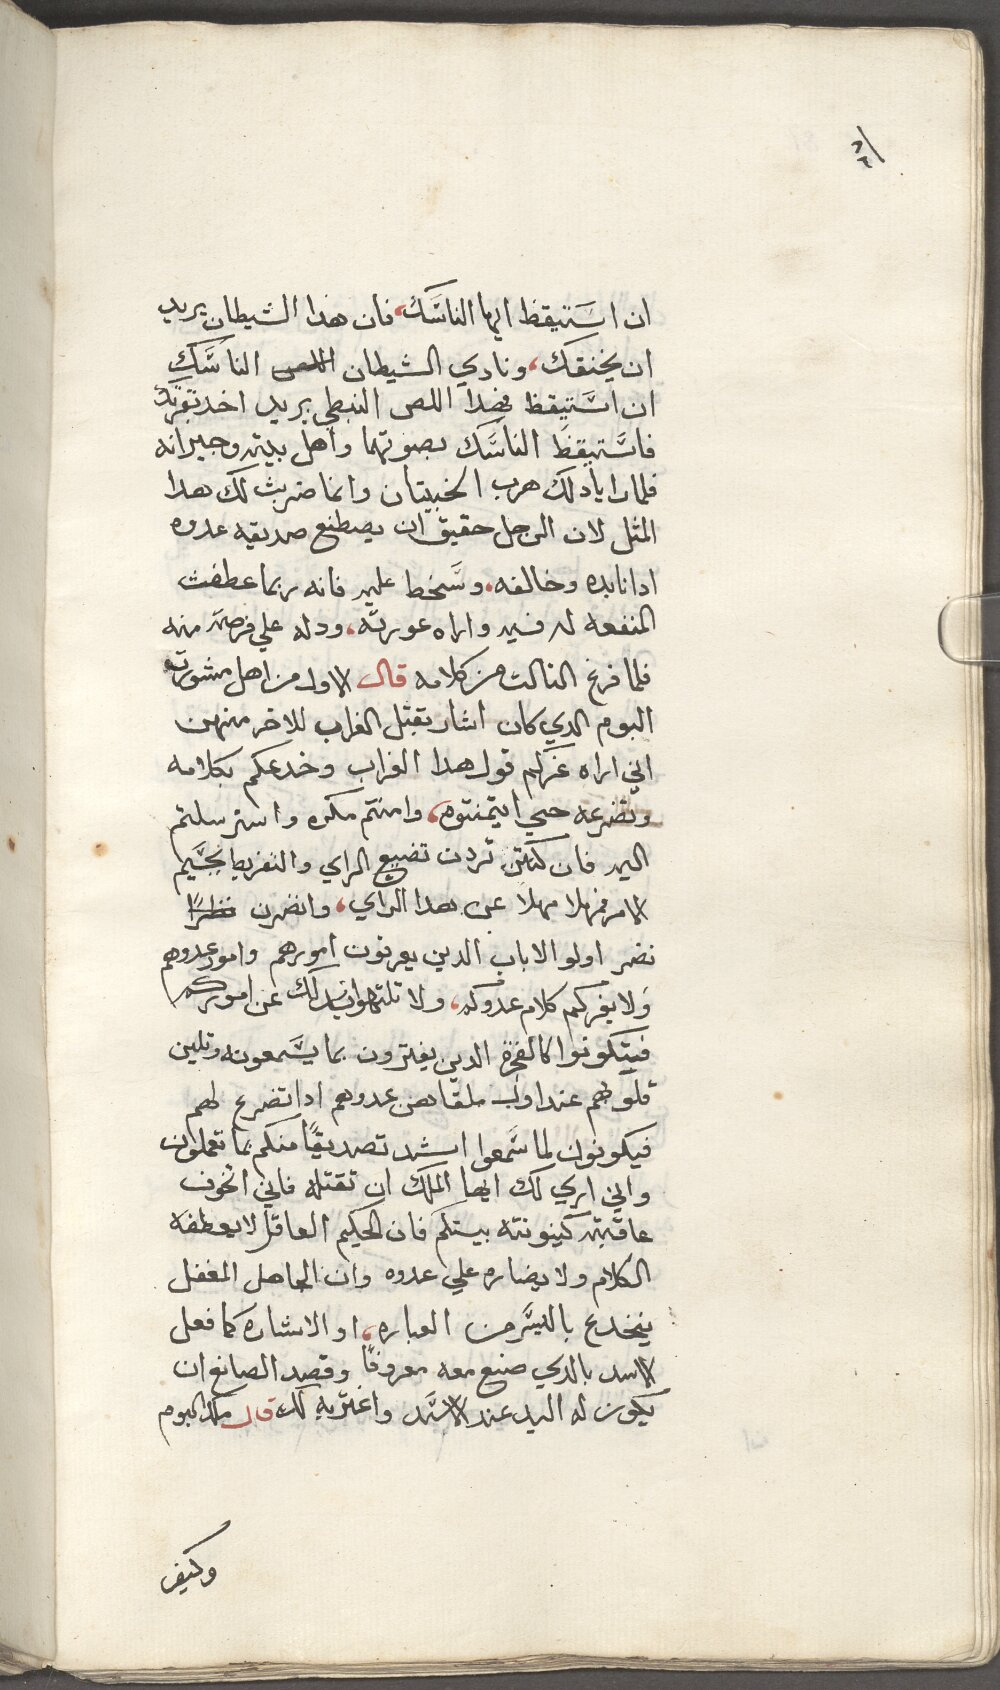 ان استيقظ ايها الناسك، فان هذا الشيطان يريد
ان يخنقك، ونادي الشيطان اللص الناسك
ان استيقظ فهدا اللص النبطي يريد اخد بقرتك
فاستيقظ الناسك بصوتهما واهل بيته وجيرانه
فلما رايا دلك هرب الخبيتان وانما ضربت لك هدا
المثل لان الرجل حقيق ان يصطنع صديقه عدوه
ادا نابده وخالفه، وسخط عليه فانه ربما عطفت
المنفعه له فيه واراه عورته، ودله علي فرصه منه
فلما فرغ الثالث من كلامه قال الاول من اهل مشورته
البوم الدي كان اشار بقتل الغراب للاخر منهن
اني اراه غركم قول هدا الغراب وخدعكم بكلامه
وتضرعه حتي ايتمنتوه، وامنتم مكره واسترسلتم
اليه فان كنتن تردن تضييع الراي والتفريط بجسيم
الامر فمهلا مهلا عن هدا الراي، وانضرن نظرًا
نضر اولو الالباب الدين يعرفون امورهم وامور عدوهم
ولا يغركم كلام عدوكم، ولا تلتهوا بدلك عن اموركم
فتكونوا كالفجرة الدين يغترون بما يسمعونه وتلين
قلوبهم عند اول عدوهم ادا تضرع لهم
فيكونون لما سمعوا اشد تصديقًا منكم بما تعملون
واني اري لك ايها الملك ان تقتله فاني اتخوف
عاقبة كينونته بينكم فان الحكيم العاقل لا يعطفه
الكلام ولا يضاره علي عدوه وان الجاهل المغفل
ينخدع باليسر من العباره، او الاشاره كما فعل
الاسد بالدي صنع معه معروفًا وقصد الصانع ان
يكون له اليد عند الاسد واغتر به لك قال ملك البوم
وكيف